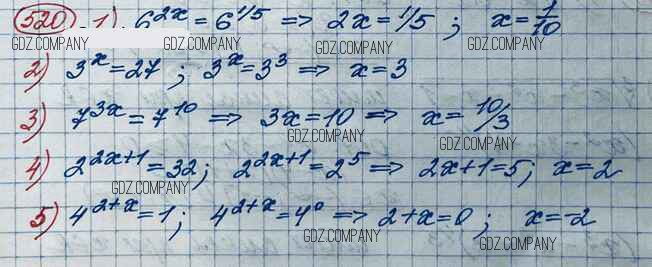 520 1) 6^{2x} = 6^{1/5} => 2x = 1/5 ; x = 1/10
GDZ.COMPANY GDZ.COMPANY GDZ.COMPANY
2) 3^x = 27 ; 3^x = 3^3 => x = 3
3) 7^{3x} = 7^{10} => 3x = 10 => x = 10/3
GDZ.COMPANY GDZ.COMPANY
4) 2^{2x+1} = 32; 2^{2x+1} = 2^5 => 2x+1 = 5; x = 2
GDZ.COMPANY GDZ.COMPANY
5) 4^{2+x} = 1; 4^{2+x} = 4^0 => 2+x = 0 ; x = -2
GDZ.COMPANY GDZ.COMPANY